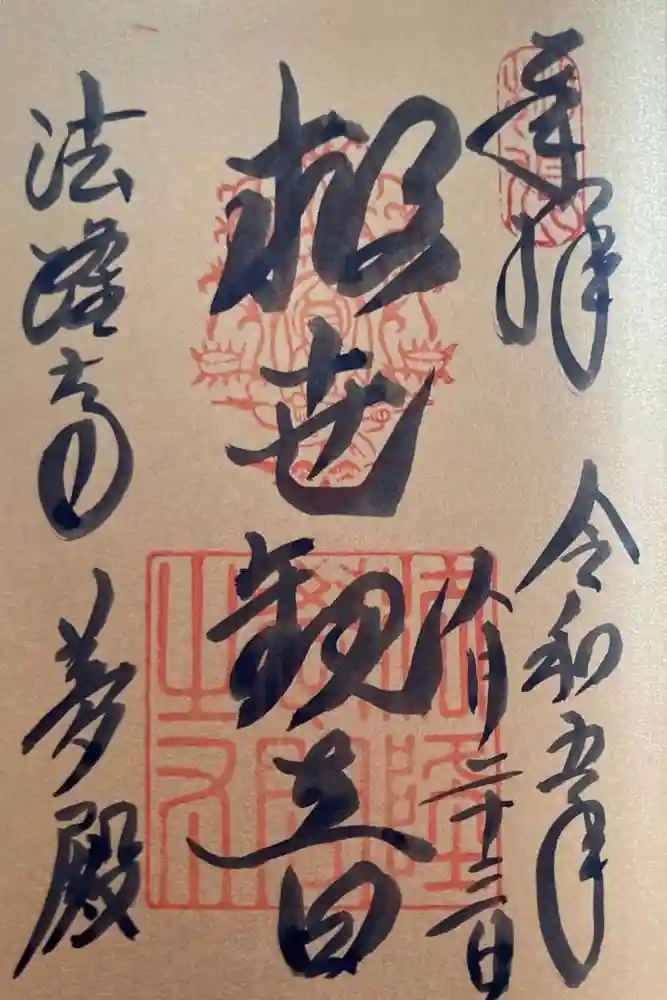 奉拝
令和五年
八月二十三日
救世観音
法隆寺 夢殿